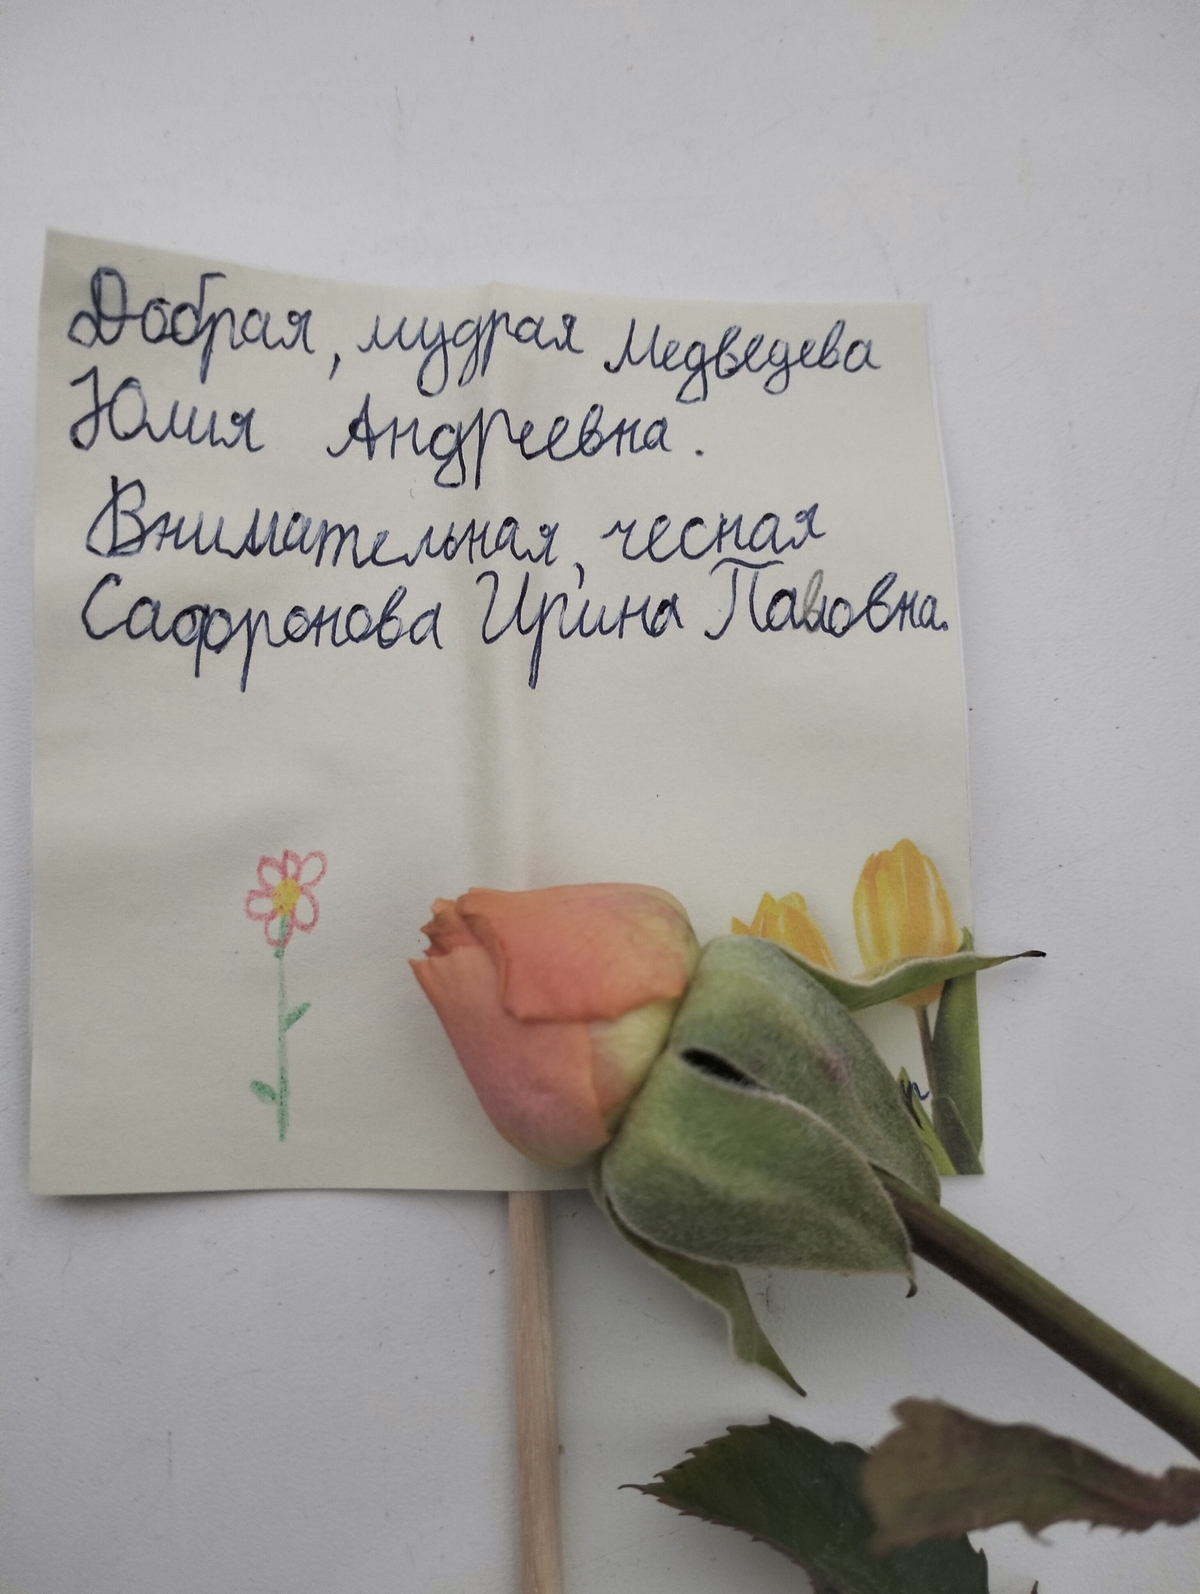 Добрая, мудрая Медведева
Юлия Андреевна.
Внимательная, чесная
Сафронова Ирина Павловна.